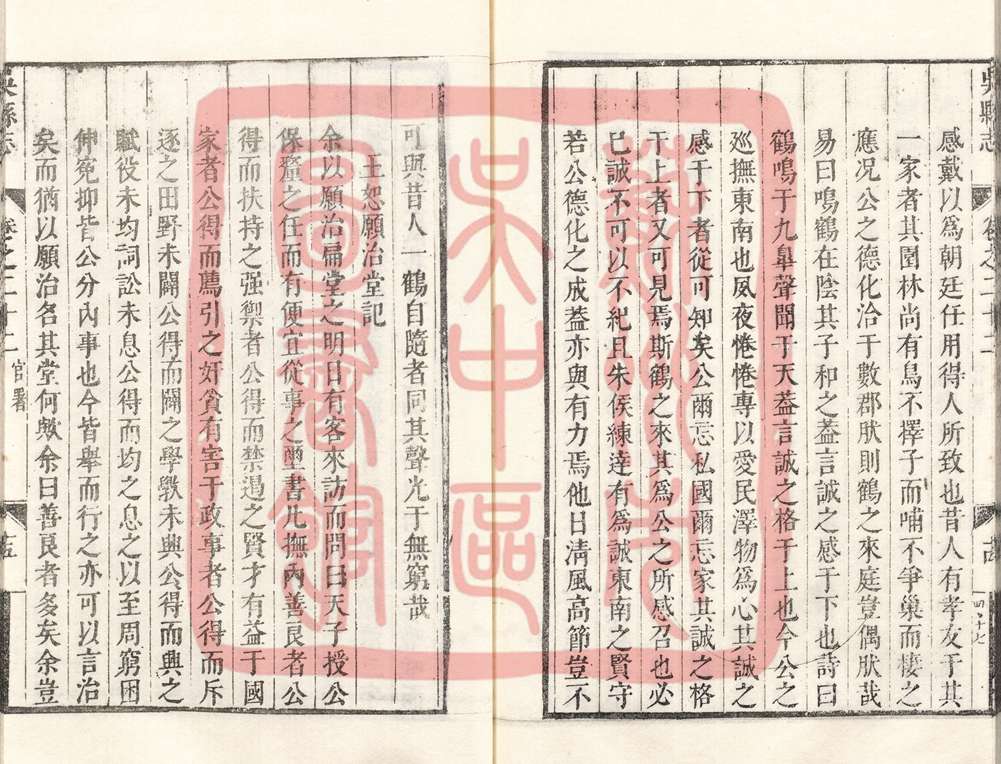 吳縣志
卷之二十二
感戴以爲朝廷任用得人所致也昔人有孝友于其
一家者其園林尚有鳥不擇子而哺不爭巢而棲之
應况公之德化洽于數郡肰則鶴之來庭豈偶肰哉
易曰鳴鶴在陰其子和之葢言誠之感于下也詩曰
鶴鳴于九臯聲聞于天葢言誠之格于上也今公之
巡撫東南也夙夜惓惓專以愛民澤物爲心其誠之
感于下者從可知矣公爾忘私國爾忘家其誠之格
于上者又可見焉斯鶴之來其爲公之所感召也必
已誠不可以不紀且朱侯練達有爲誠東南之賢守
若公德化之成葢亦與有力焉他日清風高節豈不
可與昔人一鶴自隨者同其聲光于無窮哉
王恕願治堂記
余以願治扁堂之明日有客來訪而問曰天子授公
保釐之任而有便宜從事之璽書凡撫內善良者公
得而扶持之强禦者公得而禁遏之賢才有益于國
家者公得而薦引之奸貪有害于政事者公得而斥
逐之田野未闢公得而闢之學斆未興公得而興之
賦役未均詞訟未息公得而均之息之以至周窮困
伸冤抑皆公分內事也今皆舉而行之亦可以言治
矣而猶以願治名其堂何歟余曰善良者多矣余豈
吳縣志
卷之二十二
官署
五
蘇州市
吳中區
圖書館